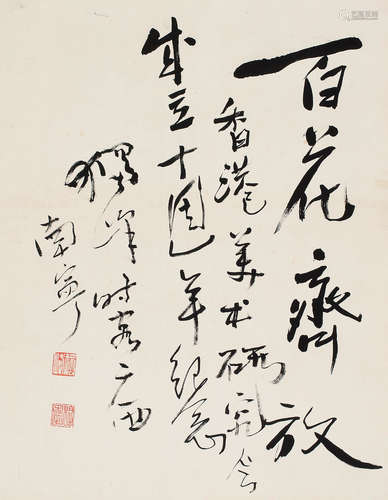 百花齊放
香港美术研究会
成立十周年纪念
独峰时客广西
南宁